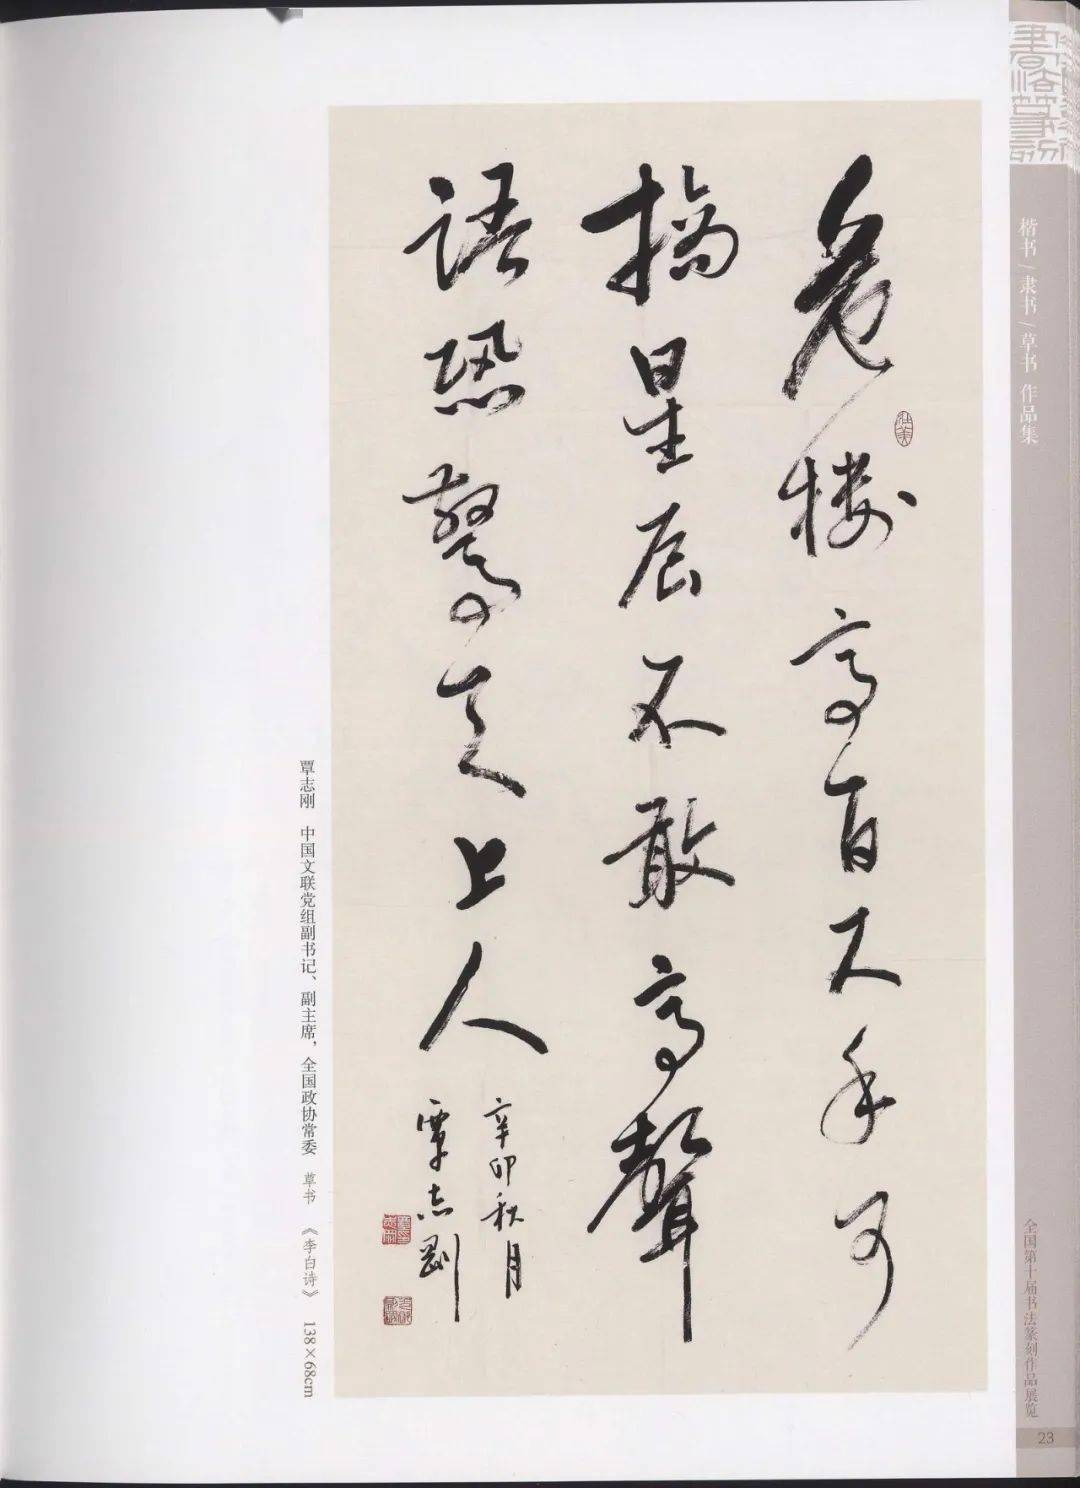 危楼高百尺手可
摘星辰不敢高聲
語恐驚天上人
辛卯秋月
覃志剛
覃志刚 中国文联党组副书记、副主席，全国政协常委 草书 《李白诗》 138×68cm
楷书/隶书/草书 作品集
全国第十届书法篆刻作品展览
23